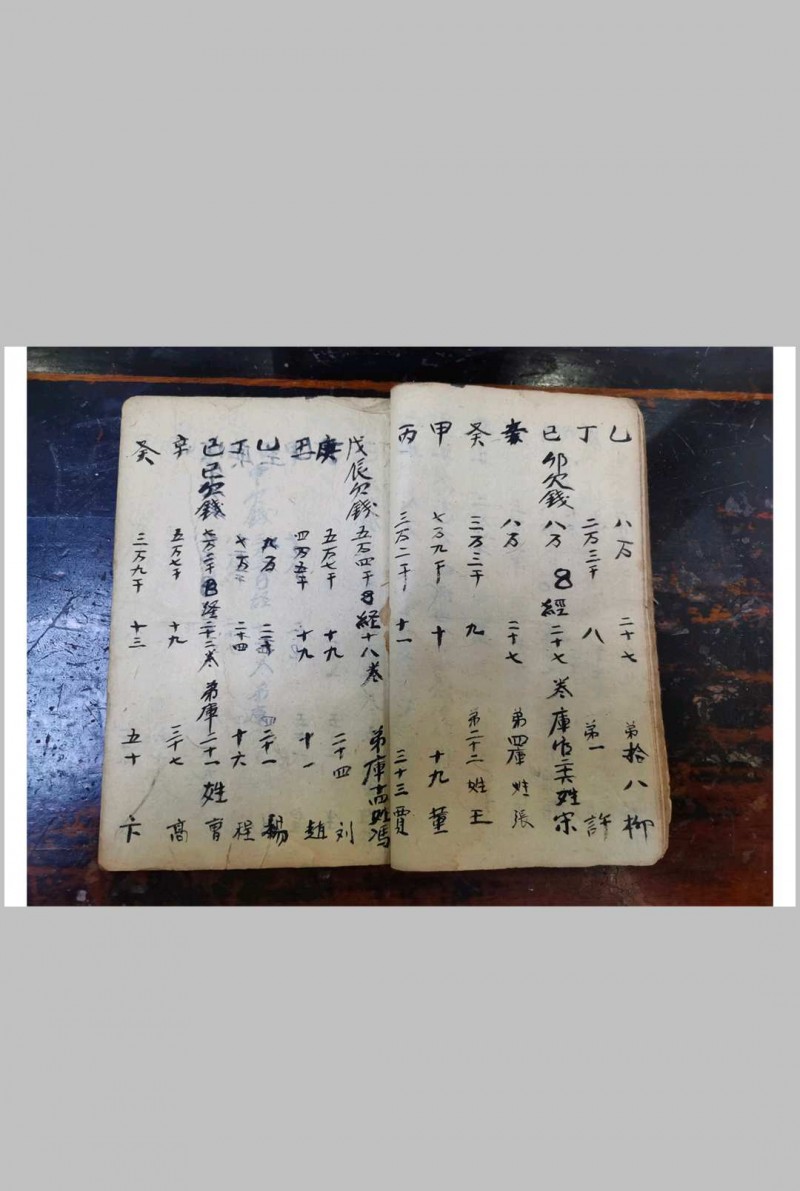 乙 八万 二十七 第拾八 柳
丁 二万三千 八 第一 許
己卯欠錢 八万 8經 二十七卷 庫官 姓宋
八万 二十七 第四庫 姓張
癸 三万三千 九 第二十二 姓王
甲 七万九千 十 十九 董
丙 三万二千 十一 三十三 賈
戊辰欠錢 五万四千 8経 十八卷 第庫 姓馮
庚 五万七千 十九 二十四 刘
四万五千 十九 十一 趙
乙 九万 二十一 楊
丁 七万 二十四 十六 程
己巳欠錢 七万二千 8経 二十二本 弟庫 二十一 姓曹
辛 五万七千 十九 三十七 高
癸 三万九千 十三 五十 卞